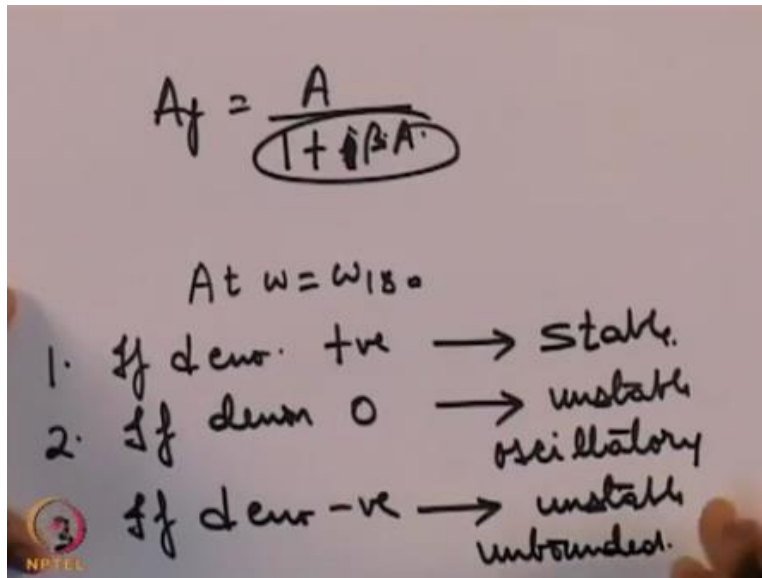 Af = A / 1 + βA.
At ω = ω180
1. If deno. +ve → stable.
2. If denom 0 → unstable
oscillatory
3 If deno -ve → unstable
unbounded.
NPTEL